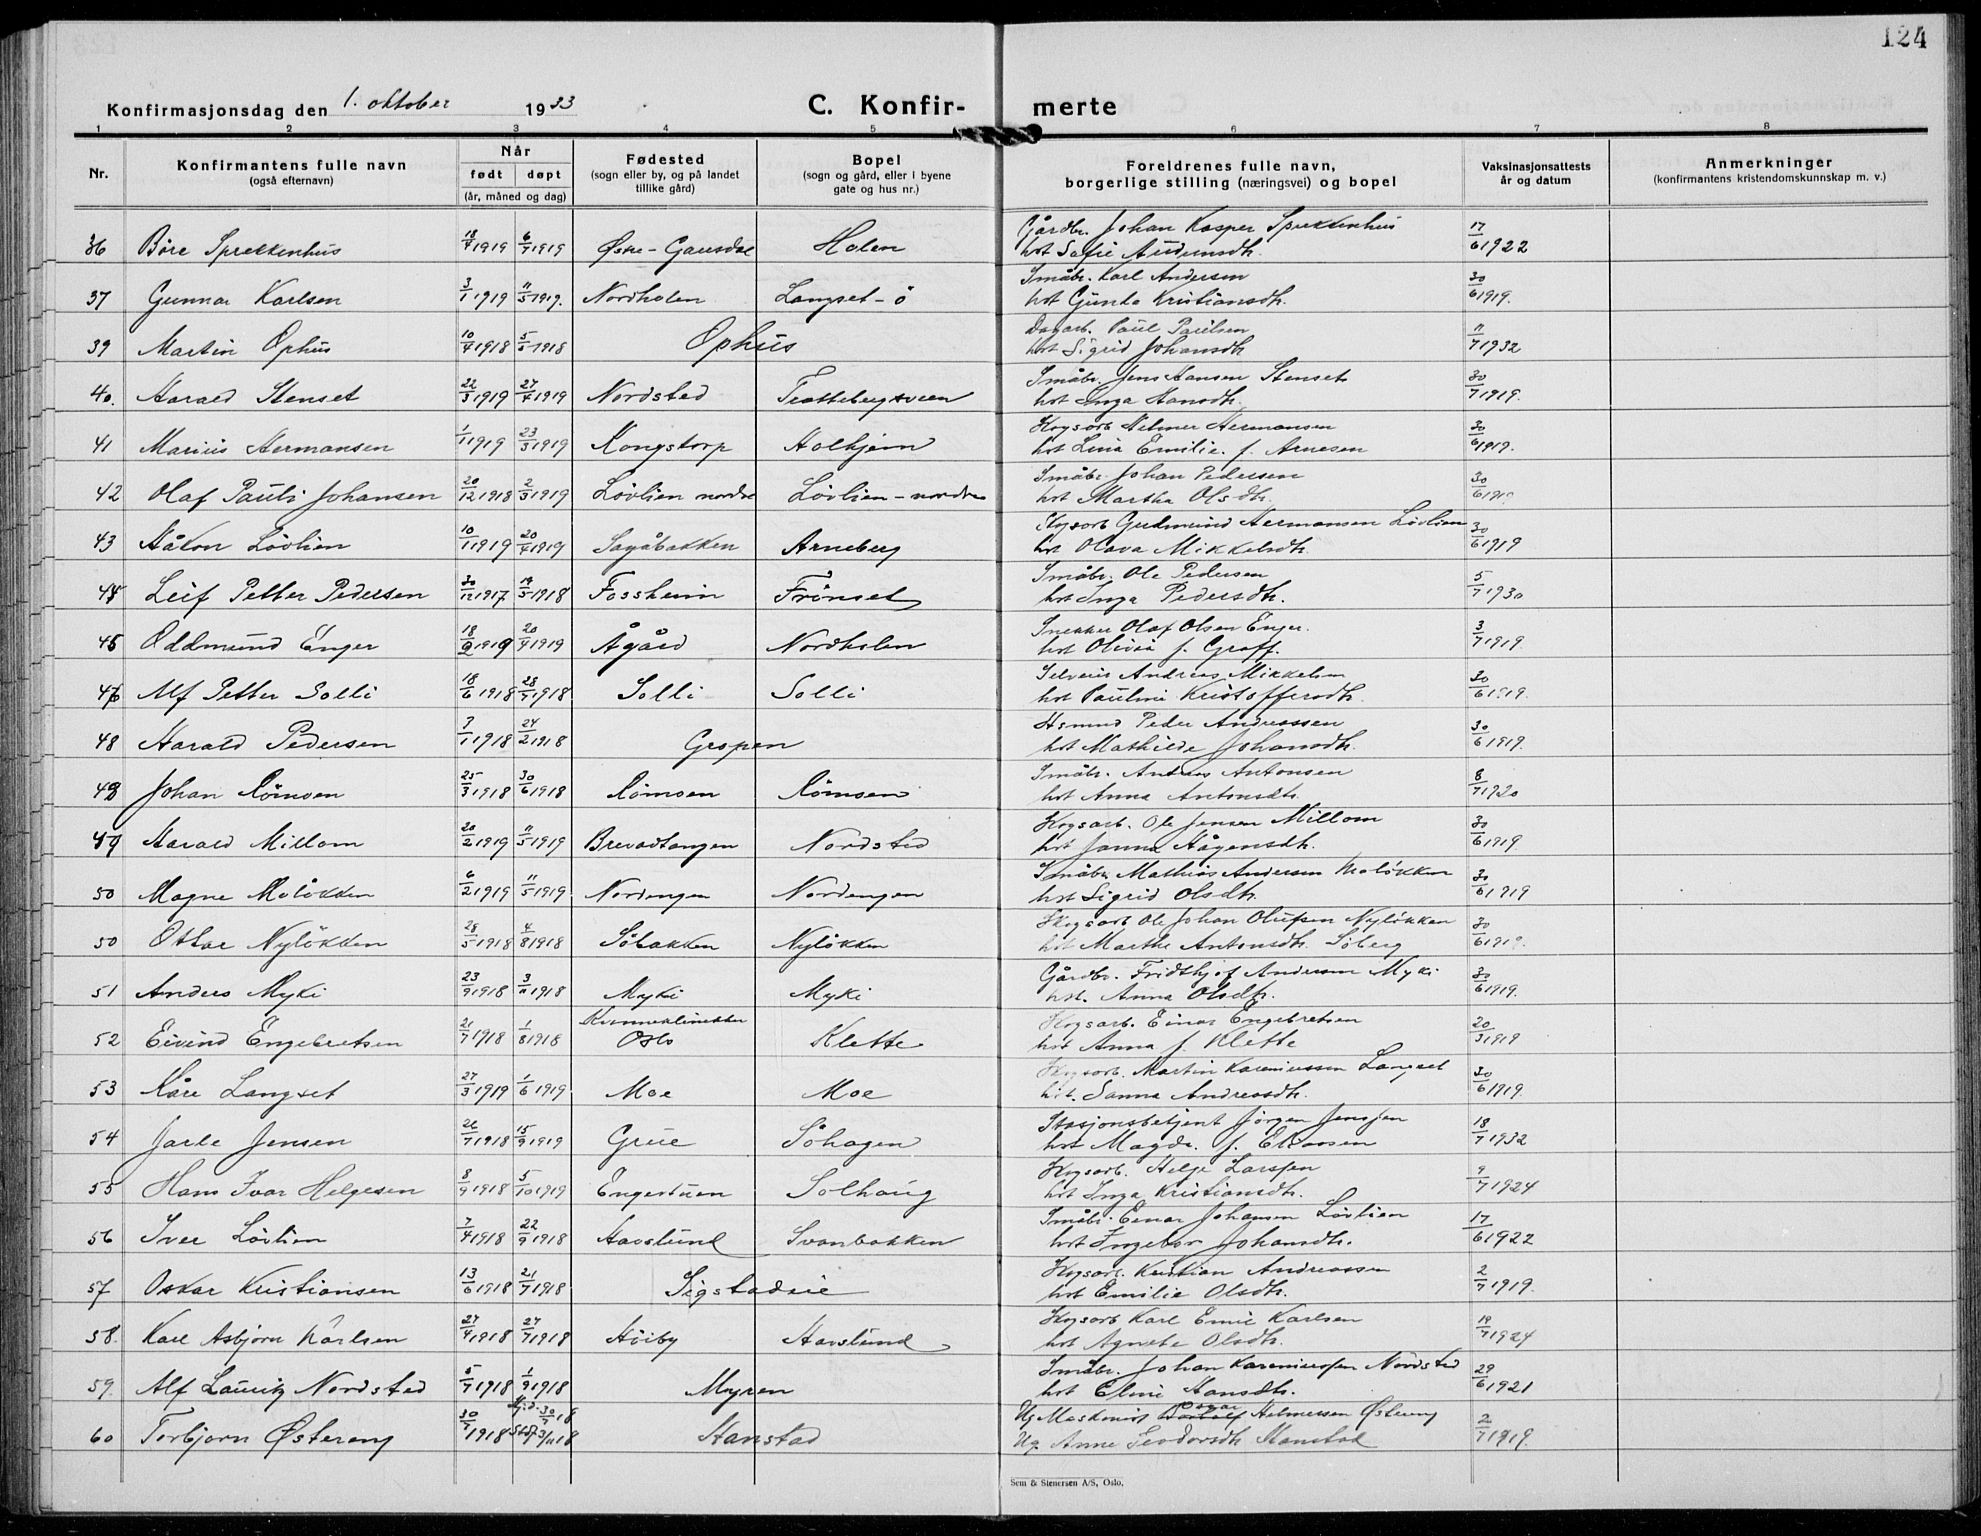 124
Konfirmasjonsdag den 1. oktober 1933 C. Konfir- merte
1 2 3 4 5 6 7 8
Nr. Konfirmantens fulle navn (også efternavn) Når født døpt (år, måned og dag) Fødested (sogn eller by, og på landet tillike gård) Bopel (sogn og gård, eller i byene gate og hus nr.) Foreldrenes fulle navn, borgerlige stilling (næringsvei) og bopel Vaksinasjonsattests år og datum Anmerkninger (konfirmantens kristendomskunnskap m. v.)
36 Børe Sprekkenhus 18/4 1919 6/7 1919 Østre-Gausdal Holen Gårdbr. Johan Kasper Sprekkenhus 17/6 1922
hst Sofie
37 Gunnar Karlsen 3/1 1919 11/5 1919. Nordholen Langset-ö Småbr. Karl Andersen 30/6 1919.
hst Gunda Kristiansdtr.
39 Martin Ophus 10/4 1918 5/5 1918 Ophus Dagarb. Paul Paulsen 11/7 1932
hst Sigrid Johansdtr
40. Harald Stenset 22/3 1919 27/4 1919 Nordsted Trættebergsveen Småbr. Jens Hansen Stenset 30/7 1919.
hst Inga Hansdtr.
41 Marius Hermansen 1/1 1919 23/3 1919 Kongstorp Holhjem Skogsarb Helmer Hermansen 30/6 1919.
hst Lina Emilie. f. Arnesen
42 Olaf Pauli Johansen 20/12 1918 2/3 1919 Lövlien nordre Lövlien-nordre Småbr. Johan Pedersen 30/6 1919
hst Martha Olsdtr.
43 Håkon Lövlien 10/1 1919 20/4 1919 Sagåbakken Arneberg Skogsarb Gudmund Hermansen Lövlien 30/6 1919
hst Olava Mikkelsdtr.
44 Leif Petter Pedersen 30/12 1917 19/5 1918 Fossheim Frönset Småbr. Ole Pedersen 5/7 1930
hst Inga Pedersdtr.
45 Oddmund Enger 18/2 1919 20/4 1919 Ågård Nordholen Snekker Olaf Olsen Enger. 3/7 1919.
hst Olivia f. Graff.
46 Alf Petter Solli 18/6 1918 28/7 1918 Solli Solli Selveier Andreas Mikkelsen 30/6 1919.
hst Pauline Kristoffersdtr.
48 Harald Pedersen 7/1 1918 24/2 1918 Gropen Hsmnd Peder Andreassen 30/6 1919.
hst Mathilde Johansdtr.
48 Johan Römoen 25/3 1918 30/6 1918 Römoen Römoen Småbr. Anders Antonsen 8/7 1920
hst Anna Antonsdtr.
49 Harald Millom 20/2 1919 11/5 1919 Brevadtangen Nordsted Skogsarb. Ole Jensen Millom 30/6 1919
hst Janna Hågensdtr.
50 Magne Molökken 6/2 1919 11/5 1919. Nordengen Nordengen Småbr Mathias Andersen Molökken 30/6 1919
hst Sigrid Olsdtr.
50 Ottar Nylökken 28/5 1918 4/8 1918 Söbakken Nylökken Skogsarb Ole Johan Olufsen Nylökken 30/6 1919.
hst Marthe Antonsdtr. Söberg
51 Anders Myki 23/9 1918 3/11 1918 Myki Myki Gårdbr. Fridthjof Andersen Myki 30/6 1919.
hst. Anna Olsdtr.
52 Eivind Engebretsen 21/7 1918 1/8 1918 Kvinneklinikken Oslo Klette Skogsarb. Einar Engebretsen 20/3 1919
hst Anna f. Klette
53 Kåre Langset 27/3 1919 1/6 1919. Moe Moe Skogsarb. Martin Kareniussen Langset 30/6 1919.
hst. Sanna Andreasdtr.
54 Jarle Jensen 26/7 1918 15/9 1919 Grue Söhagen Stasjonsbetjent Jörgen Jensen 18/7 1932
hst Magda. f. Eliassen
55 Hans Ivar Helgesen 8/9 1918 5/10 1919 Engerstuen Solhaug Skogsarb. Helge Larssen 9/7 1924
hst Inga Kristiansdtr.
56 Iver Lövlien 7/4 1918 22/9 1918 Havslund Svenbakken Småbr. Einar Johansen Lövlien 17/6 1922
hst Ingebor Johansdtr.
57 Oskar Kristiansen 13/6 1918 21/7 1918 Sigstadeie Skogsarb. Kristian Andreassen 2/7 1919.
hst Emilie Olsdtr.
58. Karl Asbjørn Karlsen 27/4 1918 27/7 1918 Höiby Havslund Skogsarb Karl Emil Karlsen 19/7 1924
hst Agnete Olsdtr.
59. Alf Lauritz Nordsted 5/7 1918 1/9 1918 Myren Småbr. Johan Kareniussen Nordsted 29/6 1921
hst Eline Hansdtr.
60 Torbjørn Østereng 30/7 1918 Hj.d. 30/7 18 Stdf 3/11 18 Hanstad Ug Maskinist Ragnar Helmersen Østereng 2/7 1919.
Ug. Anne Teodorsdtr Hanstad
Sem & Stenersen A/S, Oslo.